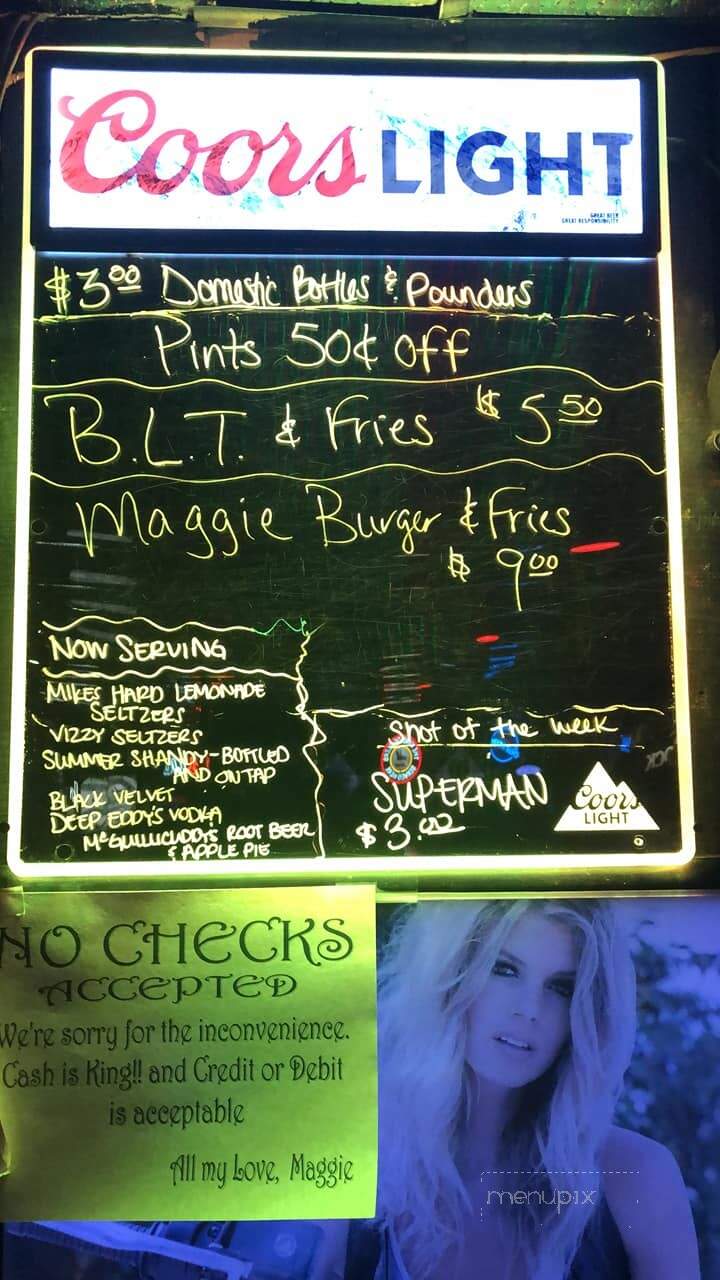 Coors LIGHT
GREAT BEER
GREAT RESPONSIBILITY
$3.00 Domestic Bottles & Pounders
Pints 50¢ off
B.L.T. & Fries $5.50
Maggie Burger & Fries
$9.00
NOW SERVING
MIKES HARD LEMONADE
SELTZERS
VIZZY SELTZERS
SUMMER SHANDY-BOTTLED
AND ON TAP
BLACK VELVET
DEEP EDDY'S VODKA
McGUILLICUDDYS ROOT BEER
& APPLE PIE
Shot of the Week
SUPERMAN
$3.00
Coors
LIGHT
NO CHECKS
ACCEPTED
We're sorry for the inconvenience.
Cash is King!! and Credit or Debit
is acceptable
All my Love, Maggie
menupix